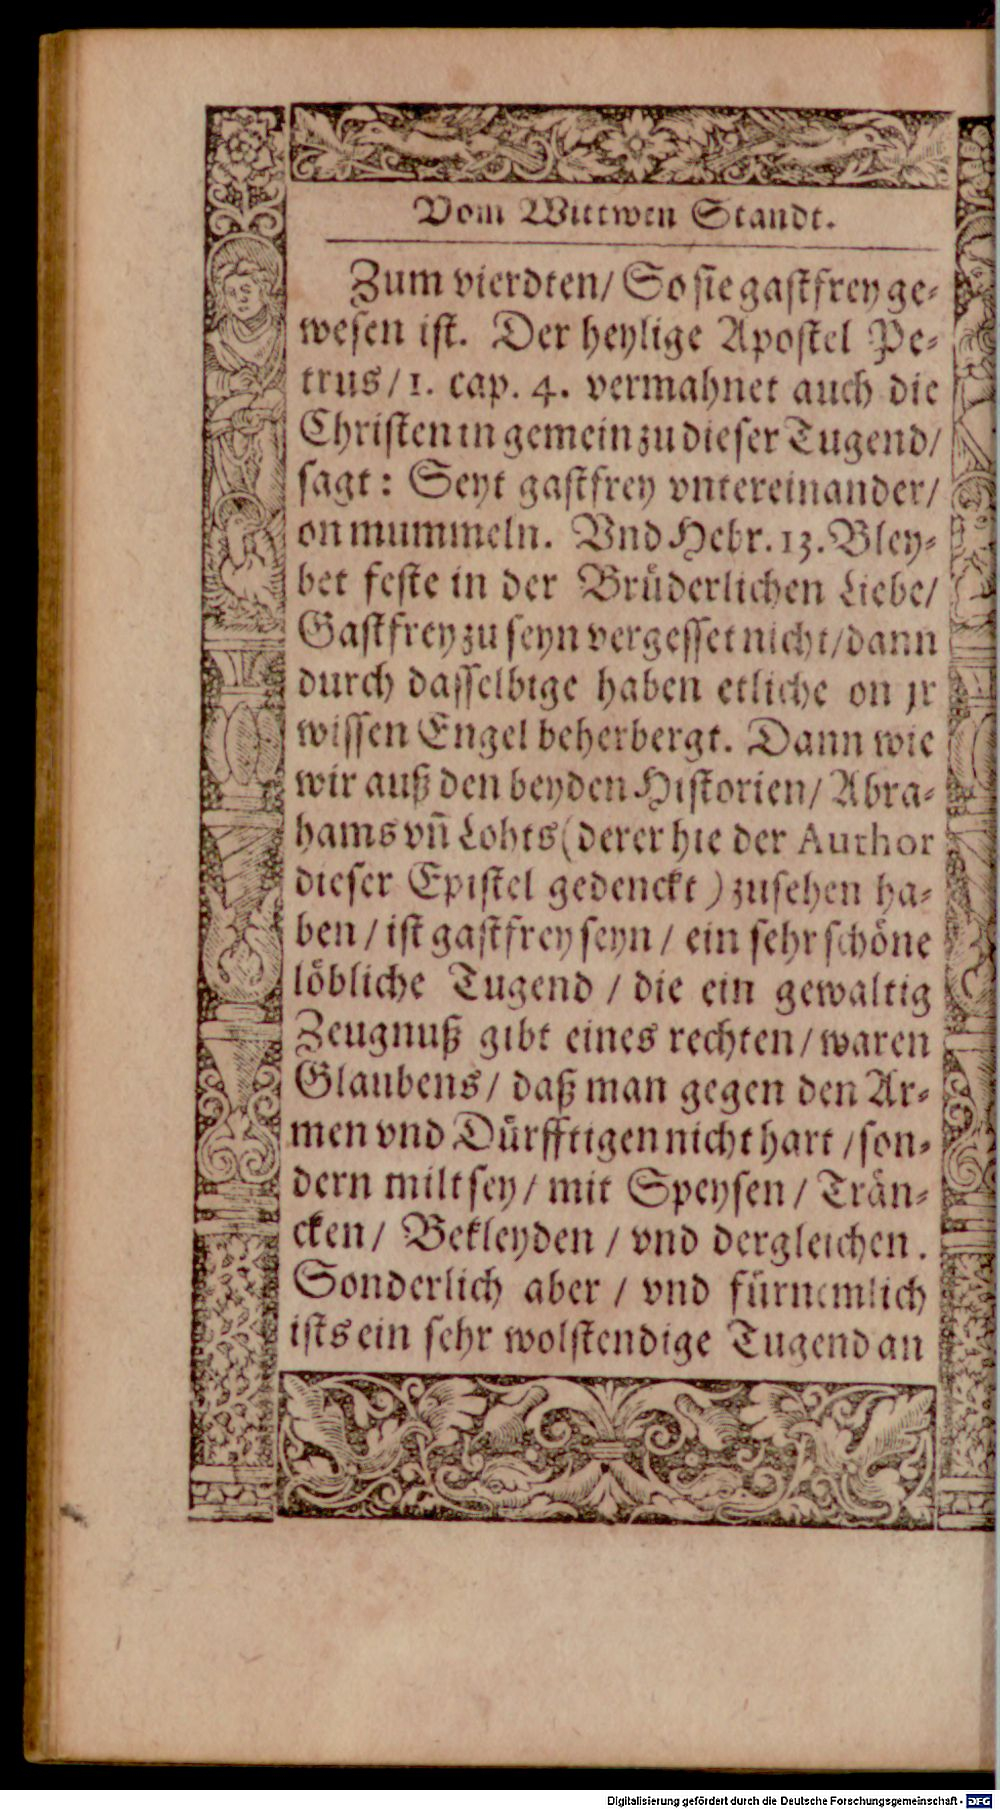 Vom Wittwen Standt.
Zum vierdten/ So sie gastfrey ge-
wesen ist. Der heylige Apostel Pe-
trus/ 1. cap. 4. vermahnet auch die
Christen in gemein zu dieser Tugend/
sagt: Seyt gastfrey vntereinander/
on mummeln. Vnd Hebr. 13. Bley-
bet feste in der Brüderlichen Liebe/
Gastfrey zu seyn vergesset nicht/ dann
durch dasselbige haben etliche on jr
wissen Engel beherbergt. Dann wie
wir auß den beyden Historien/ Abra-
hams vñ Lohts (derer hie der Author
dieser Epistel gedenckt) zusehen ha-
ben/ ist gastfrey seyn/ ein sehr schöne
löbliche Tugend/ die ein gewaltig
Zeugnuß gibt eines rechten/ waren
Glaubens/ daß man gegen den Ar-
men vnd Dürfftigen nicht hart/ son-
dern milt sey/ mit Speysen/ Trän-
cken/ Bekleyden/ vnd dergleichen.
Sonderlich aber/ vnd fürnemlich
ists ein sehr wolstendige Tugend an
Digitalisierung gefördert durch die Deutsche Forschungsgemeinschaft - DFG